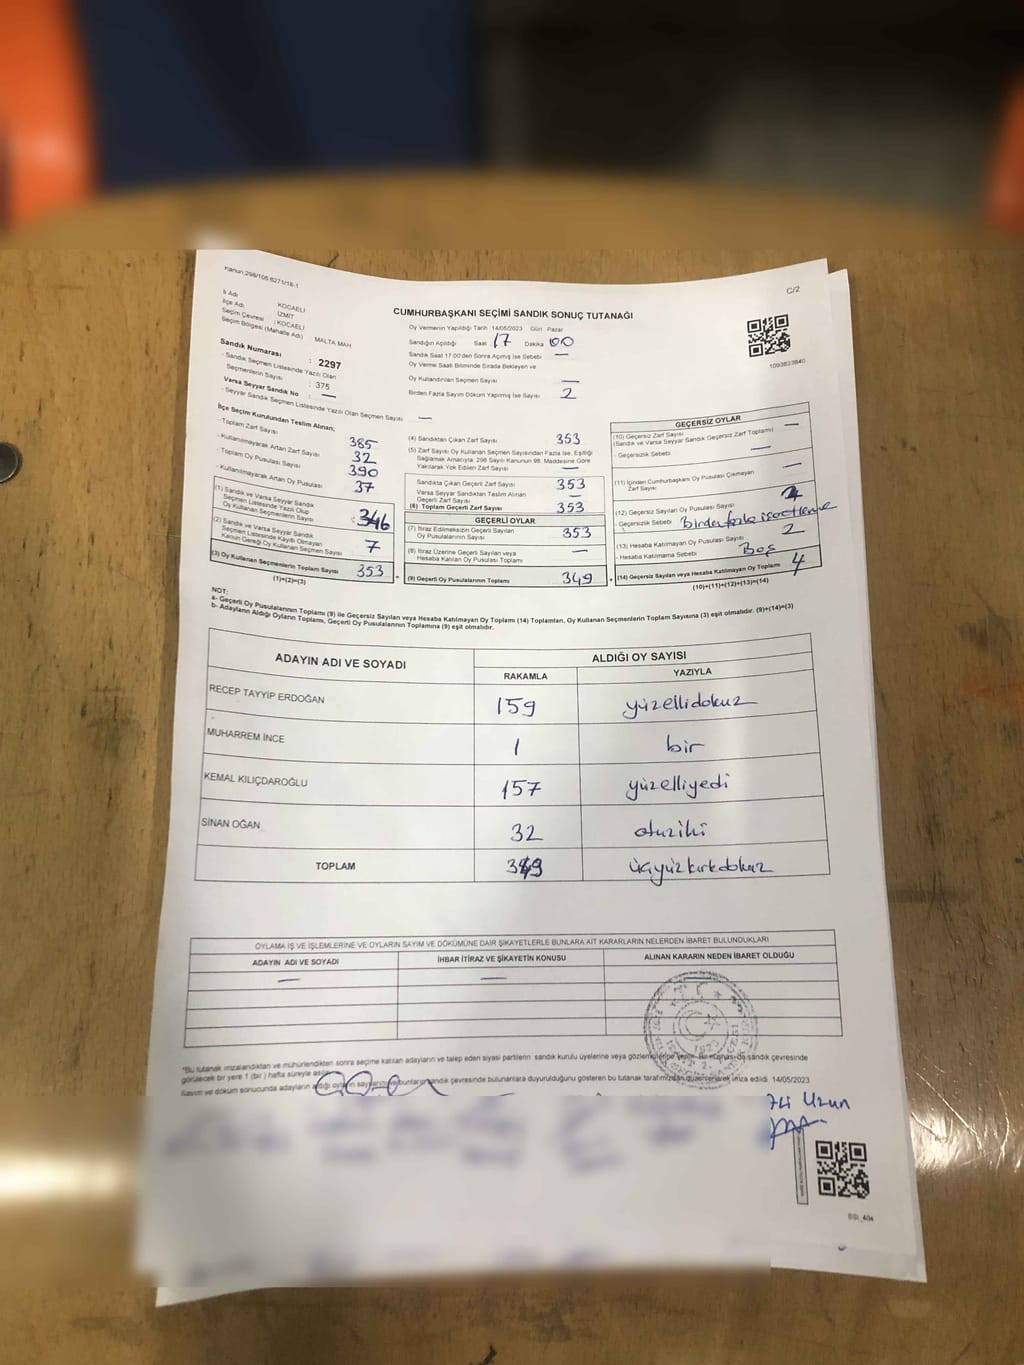 Kanun:298/105;6271/18-1
C/2
İl Adı : KOCAELİ
İlçe Adı : İZMİT
Seçim Çevresi : KOCAELİ
Seçim Bölgesi (Mahalle Adı) MALTA MAH
Sandık Numarası : 2297
- Sandık Seçmen Listesinde Yazılı Olan
Seçmenlerin Sayısı : 375
Varsa Seyyar Sandık No : —
- Seyyar Sandık Seçmen Listesinde Yazılı Olan Seçmen Sayısı —
CUMHURBAŞKANI SEÇİMİ SANDIK SONUÇ TUTANAĞI
Oy Vermenin Yapıldığı Tarih 14/05/2023 Gün Pazar
Sandığın Açıldığı Saat 17 Dakika 00
Sandık Saat 17:00'den Sonra Açılmış İse Sebebi —
Oy Verme Saati Bitiminde Sırada Bekleyen ve
Oy Kullandırılan Seçmen Sayısı —
Birden Fazla Sayım Döküm Yapılmış İse Sayısı 2
1093823840
İlçe Seçim Kurulundan Teslim Alınan;
- Toplam Zarf Sayısı 385
- Kullanılmayarak Artan Zarf Sayısı 32
- Toplam Oy Pusulası Sayısı 390
- Kullanılmayarak Artan Oy Pusulası 37
(1) Sandık ve Varsa Seyyar Sandık
Seçmen Listesinde Yazılı Olup
Oy Kullanan Seçmenlerin Sayısı : 346
(2) Sandık ve Varsa Seyyar Sandık
Seçmen Listesinde Kayıtlı Olmayan
Kanun Gereği Oy Kullanan Seçmen Sayısı 7
(3) Oy Kullanan Seçmenlerin Toplam Sayısı 353
(1)+(2)=(3)
(4) Sandıktan Çıkan Zarf Sayısı 353
(5) Zarf Sayısı Oy Kullanan Seçmen Sayısından Fazla İse, Eşitliği
Sağlamak Amacıyla 298 Sayılı Kanunun 98. Maddesine Göre
Yakılarak Yok Edilen Zarf Sayısı —
Sandıkta Çıkan Geçerli Zarf Sayısı 353
Varsa Seyyar Sandıktan Teslim Alınan
Geçerli Zarf Sayısı —
(6) Toplam Geçerli Zarf Sayısı 353
GEÇERLİ OYLAR
(7) İtiraz Edilmeksizin Geçerli Sayılan
Oy Pusulalarının Sayısı 353
(8) İtiraz Üzerine Geçerli Sayılan veya
Hesaba Katılan Oy Pusulası Toplamı —
(9) Geçerli Oy Pusulalarının Toplamı 349
GEÇERSİZ OYLAR
(10) Geçersiz Zarf Sayısı —
(Sandık ve Varsa Seyyar Sandık Geçersiz Zarf Toplamı)
- Geçersizlik Sebebi —
(11) İçinden Cumhurbaşkanı Oy Pusulası Çıkmayan
Zarf Sayısı —
(12) Geçersiz Sayılan Oy Pusulası Sayısı 2
- Geçersizlik Sebebi Birden fazla işaretleme
(13) Hesaba Katılmayan Oy Pusulası Sayısı 2
- Hesaba Katılmama Sebebi Boş
(14) Geçersiz Sayılan veya Hesaba Katılmayan Oy Toplamı 4
(10)+(11)+(12)+(13)=(14)
NOT:
a- Geçerli Oy Pusulalarının Toplamı (9) ile Geçersiz Sayılan veya Hesaba Katılmayan Oy Toplamı (14) Toplamları, Oy Kullanan Seçmenlerin Toplam Sayısına (3) eşit olmalıdır. (9)+(14)=(3)
b- Adayların Aldığı Oyların Toplamı, Geçerli Oy Pusulalarının Toplamına (9) eşit olmalıdır.
ADAYIN ADI VE SOYADI ALDIĞI OY SAYISI
RAKAMLA YAZIYLA
RECEP TAYYİP ERDOĞAN 159 yüzellidokuz
MUHARREM İNCE 1 bir
KEMAL KILIÇDAROĞLU 157 yüzelliyedi
SİNAN OĞAN 32 otuziki
TOPLAM 349 üçyüzkırkdokuz
OYLAMA İŞ VE İŞLEMLERİNE VE OYLARIN SAYIM VE DÖKÜMÜNE DAİR ŞİKAYETLERLE BUNLARA AİT KARARLARIN NELERDEN İBARET BULUNDUKLARI
ADAYIN ADI VE SOYADI İHBAR İTİRAZ VE ŞİKAYETİN KONUSU ALINAN KARARIN NEDEN İBARET OLDUĞU
— —
*Bu tutanak imzalandıktan ve mühürlendikten sonra seçime katılan adayların ve talep eden siyasi partilerin sandık kurulu üyelerine veya gözlemcilerine verilir. Bir nüshası da sandık çevresinde
görülecek bir yere 1 (bir) hafta süreyle asılır.
Sayım ve döküm sonucunda adayların aldığı oyların sayısının bunların sandık çevresinde bulunanlara duyurulduğunu gösteren bu tutanak tarafımızdan düzenlenerek imza edildi. 14/05/2023
Uzun